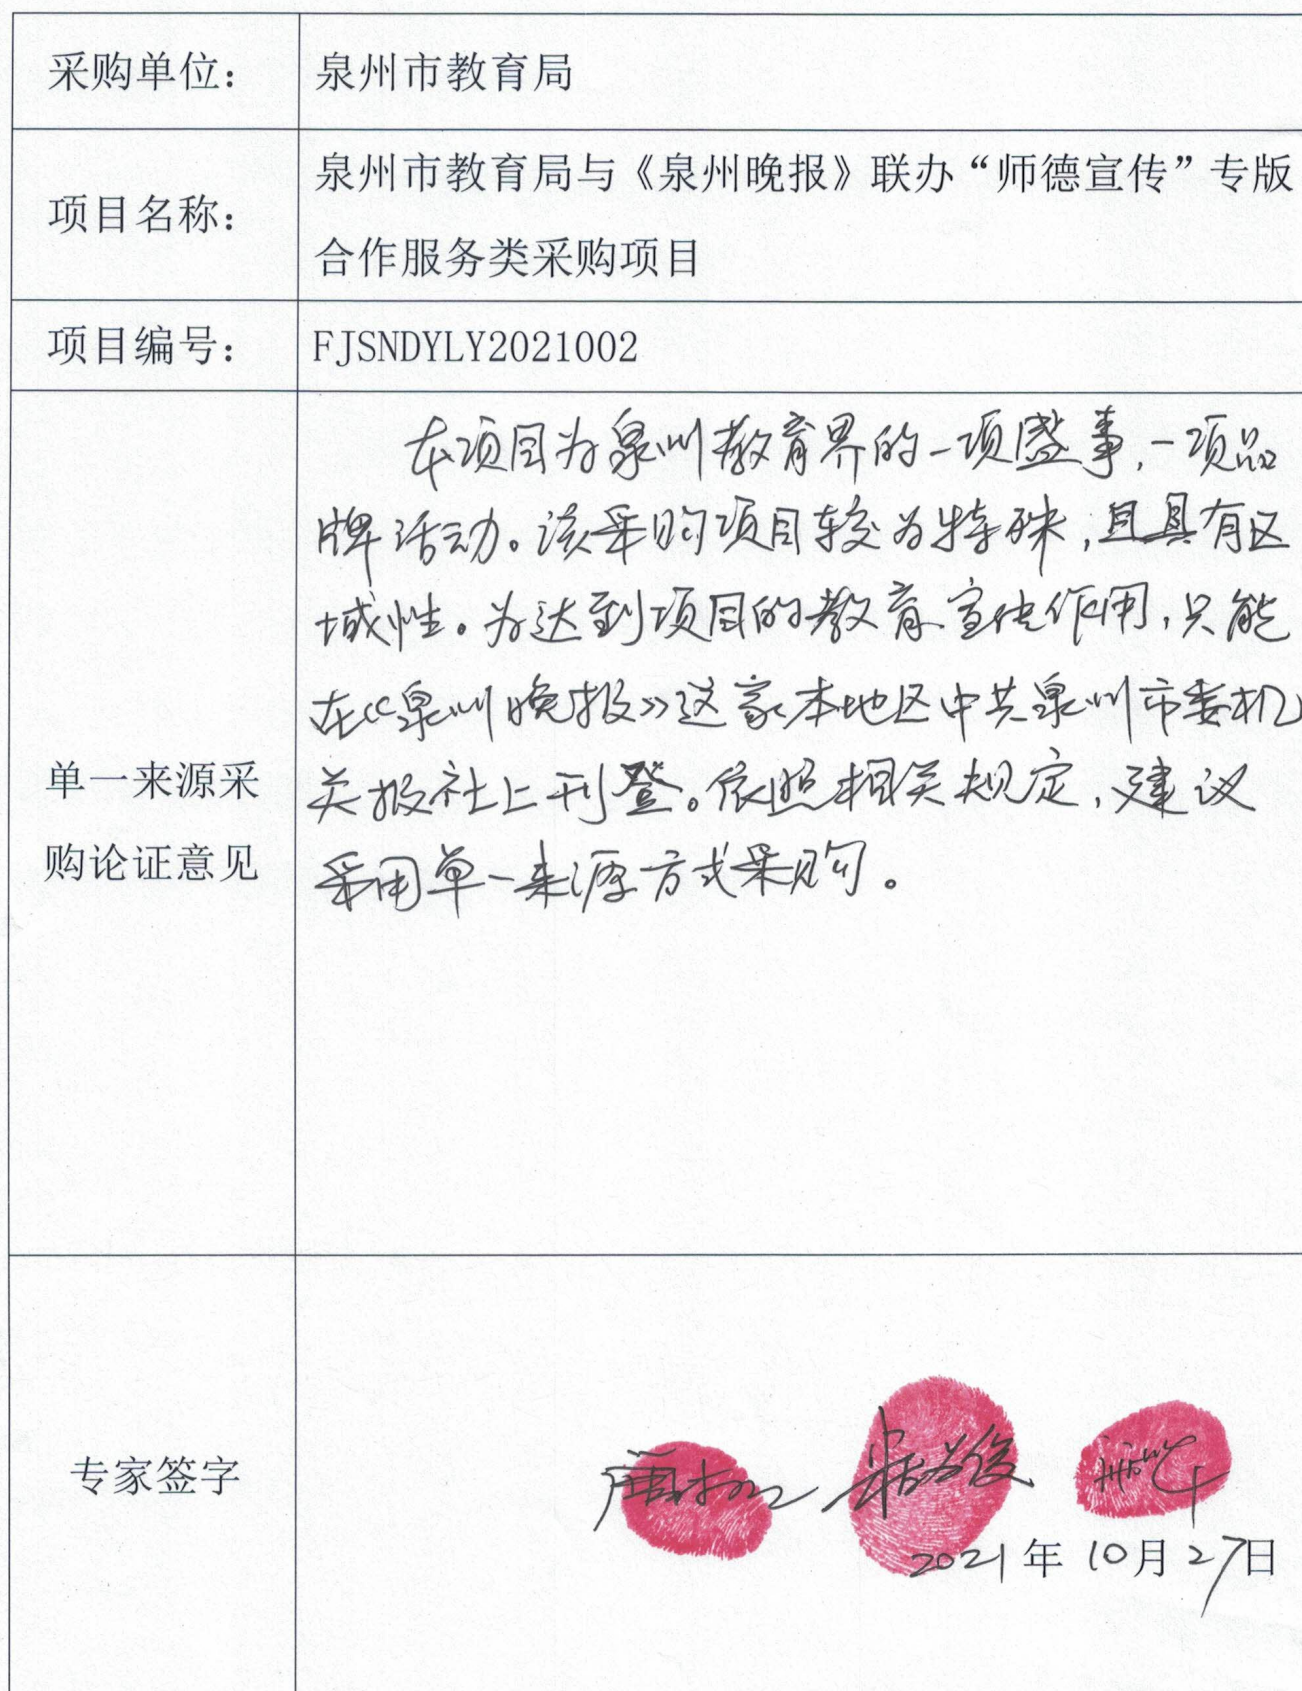 采购单位：
泉州市教育局
项目名称：
泉州市教育局与《泉州晚报》联办“师德宣传”专版
合作服务类采购项目
项目编号：
FJSNDYLY2021002
单一来源采
购论证意见
本项目为泉州教育界的一项盛事，一项品
牌活动。该采购项目较为特殊，且具有区
域性。为达到项目的教育宣传作用，只能
在《泉州晚报》这家本地区中共泉州市委机
关报社上刊登。依照相关规定，建议
采用单一来源方式采购。
专家签字
2021年10月27日